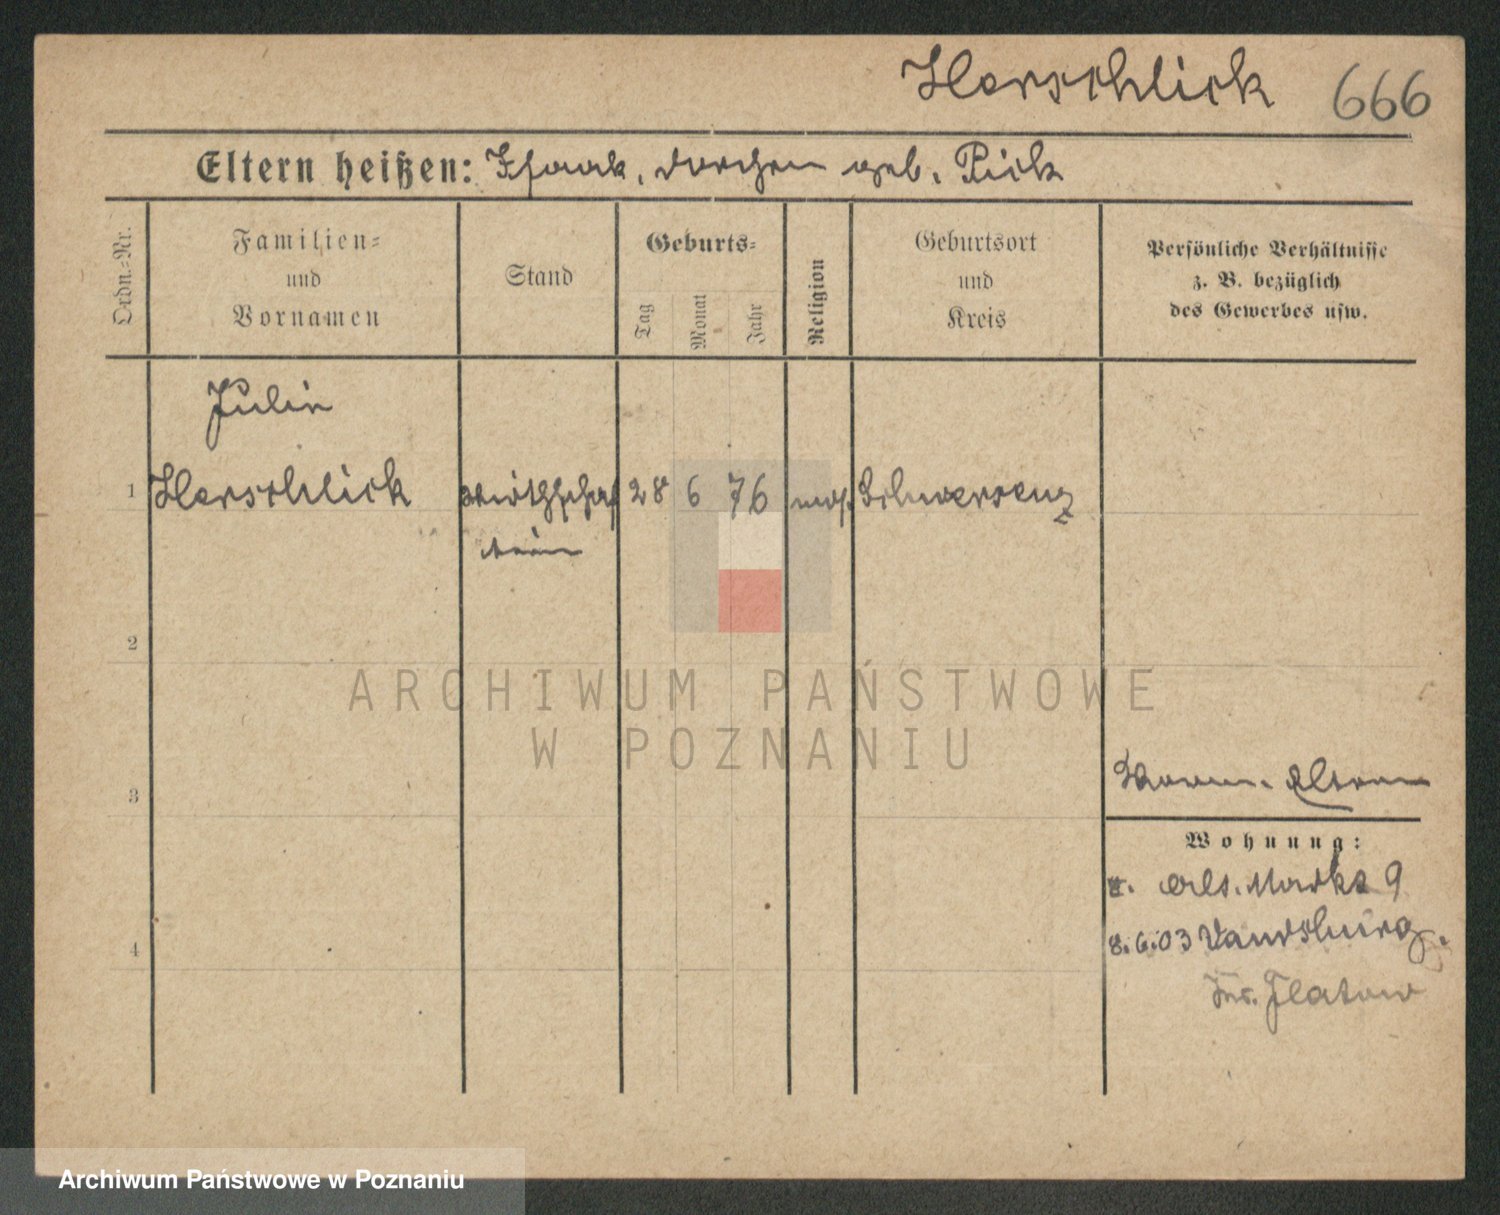 Herschlick 666
Eltern heißen: Isaak, Dorchen geb. Pick
Ordn.=Nr.
Familien=
und
Vornamen
Stand
Geburts=
Tag
Monat
Jahr
Religion
Geburtsort
und
Kreis
Persönliche Verhältnisse
z. B. bezüglich
des Gewerbes usw.
Julie
1 Herschlick Wirthschaf 28 6 76 mos. Schwersenz
terin
2
3
Eltern
Wohnung:
Alt. Markt 9
8.6.03 Vandsburg.
Kr. Flatow
4
ARCHIWUM PAŃSTWOWE
W POZNANIU
Archiwum Państwowe w Poznaniu